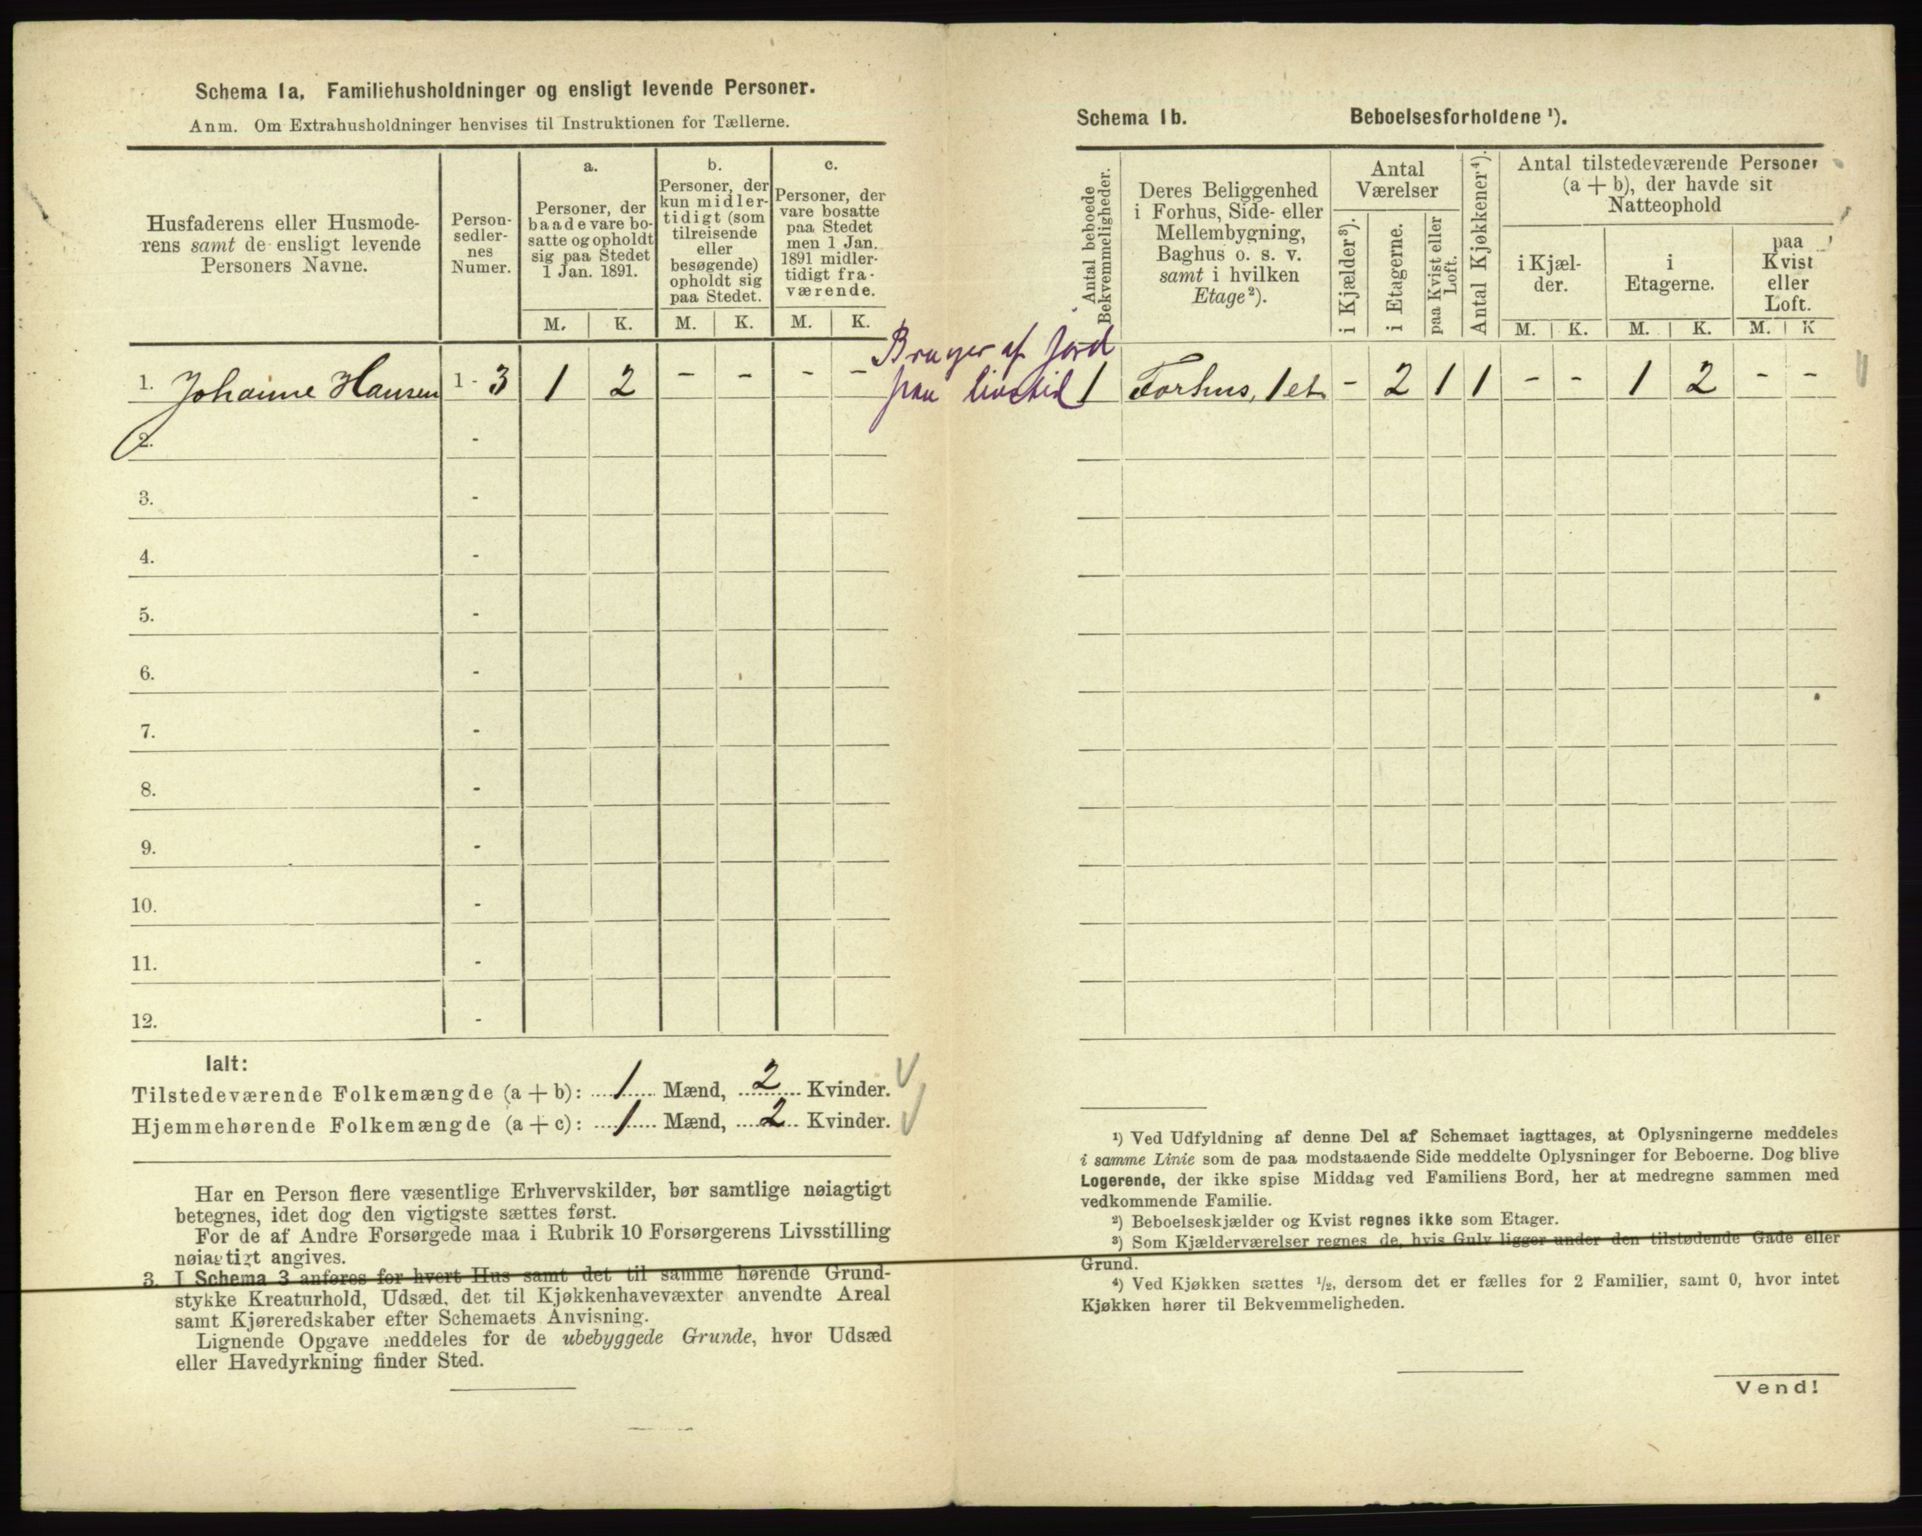 Schema 1a. Familiehusholdninger og ensligt levende Personer.
Anm. Om Extrahusholdninger henvises til Instruktionen for Tællerne.
Husfaderens eller Husmode-
rens samt de ensligt levende
Personers Navne.
Person-
sedler-
nes
Numer.
a.
Personer, der
baade vare bo-
satte og opholdt
sig paa Stedet
1 Jan. 1891.
M. K.
b.
Personer, der
kun midler-
tidigt (som
tilreisende
eller
besøgende)
opholdt sig
paa Stedet.
M. K.
c.
Personer, der
vare bosatte
paa Stedet
men 1 Jan.
1891 midler-
tidigt fra-
værende.
M. K.
1. Johanne Hansen 1 - 3 1 2 - - - -
2. -
3. -
4. -
5. -
6. -
7. -
8. -
9. -
10. -
11. -
12. -
Ialt:
Tilstedeværende Folkemængde (a + b): 1 Mænd, 2 Kvinder.
Hjemmehørende Folkemængde (a + c): 1 Mænd, 2 Kvinder.
Har en Person flere væsentlige Erhvervskilder, bør samtlige nøiagtigt
betegnes, idet dog den vigtigste sættes først.
For de af Andre Forsørgede maa i Rubrik 10 Forsørgerens Livsstilling
nøiagtigt angives.
3. I Schema 3 anføres for hvert Hus samt det til samme hørende Grund-
stykke Kreaturhold, Udsæd, det til Kjøkkenhavevæxter anvendte Areal
samt Kjøreredskaber efter Schemaets Anvisning.
Lignende Opgave meddeles for de ubebyggede Grunde, hvor Udsæd
eller Havedyrkning finder Sted.
Bruger af jord
paa livstid
Schema 1b. Beboelsesforholdene ¹).
Antal beboede
Bekvemmeligheder.
Deres Beliggenhed
i Forhus, Side- eller
Mellembygning,
Baghus o. s. v.
samt i hvilken
Etage ²).
Antal
Værelser
i Kjælder ³).
i Etagerne.
paa Kvist eller
Loft.
Antal Kjøkkener ⁴).
Antal tilstedeværende Personer
(a + b), der havde sit
Natteophold
i Kjæl-
der.
M. K.
i
Etagerne.
M. K.
paa
Kvist
eller
Loft.
M. K
1 Forhus, 1 et. - 2 1 1 - - 1 2 - -
¹) Ved Udfyldning af denne Del af Schemaet iagttages, at Oplysningerne meddeles
i samme Linie som de paa modstaaende Side meddelte Oplysninger for Beboerne. Dog blive
Logerende, der ikke spise Middag ved Familiens Bord, her at medregne sammen med
vedkommende Familie.
²) Beboelseskjælder og Kvist regnes ikke som Etager.
³) Som Kjælderværelser regnes de, hvis Gulv ligger under den tilstødende Gade eller
Grund.
⁴) Ved Kjøkken sættes ½, dersom det er fælles for 2 Familier, samt 0, hvor intet
Kjøkken hører til Bekvemmeligheden.
Vend!